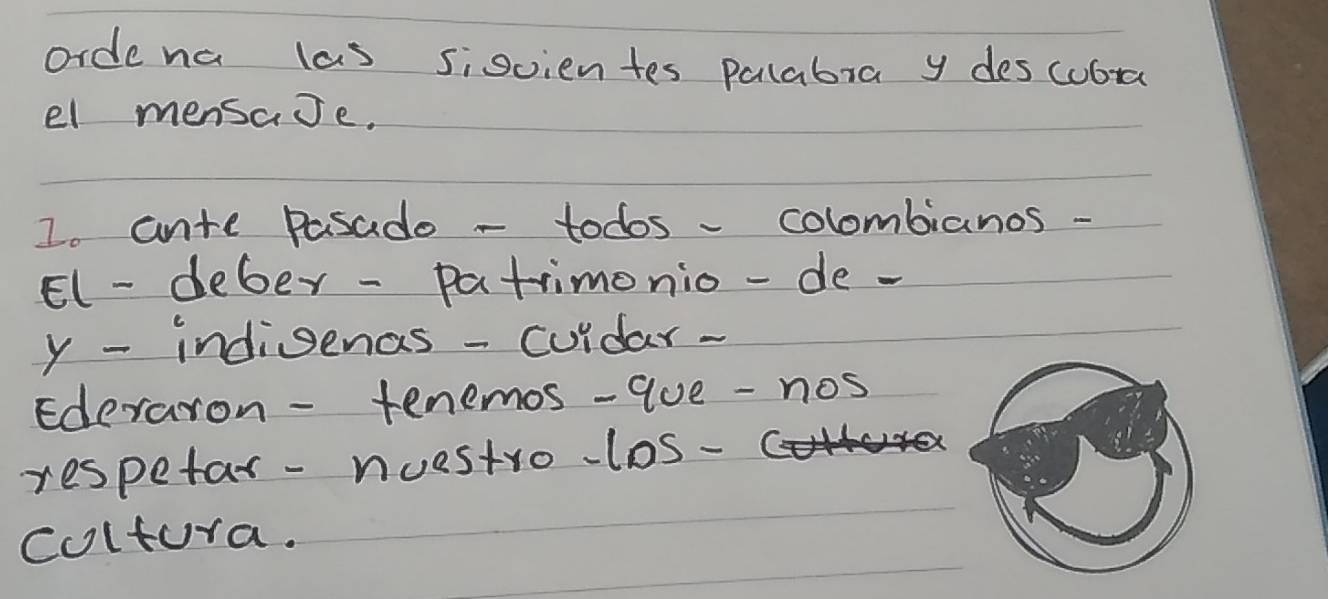 ordena las siguientes palabra y descubra
el mensaJe.
1. ante Pasado - todos - colombianos -
El - deber - patrimonio - de -
y - indigenas - cuidar -
Ederaron - tenemos - que - nos
respetar - nuestro - los - cultura
cultura.